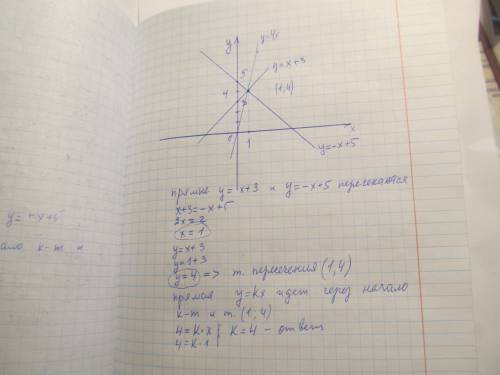 y
y=4x
y=x+3
5
4
(1,4)
3
0
1
x
y=-x+5
прямые y=x+3 и y=-x+5 пересекаются
x+3=-x+5
2x=2
x=1
y=x+3
y=1+3
y=4 => т. пересечения (1,4)
прямая y=kx идет через начало
к-т и т. (1;4)
4=k·x | k=4 - ответ
4=k·1
y=-x+5
ало к-т и